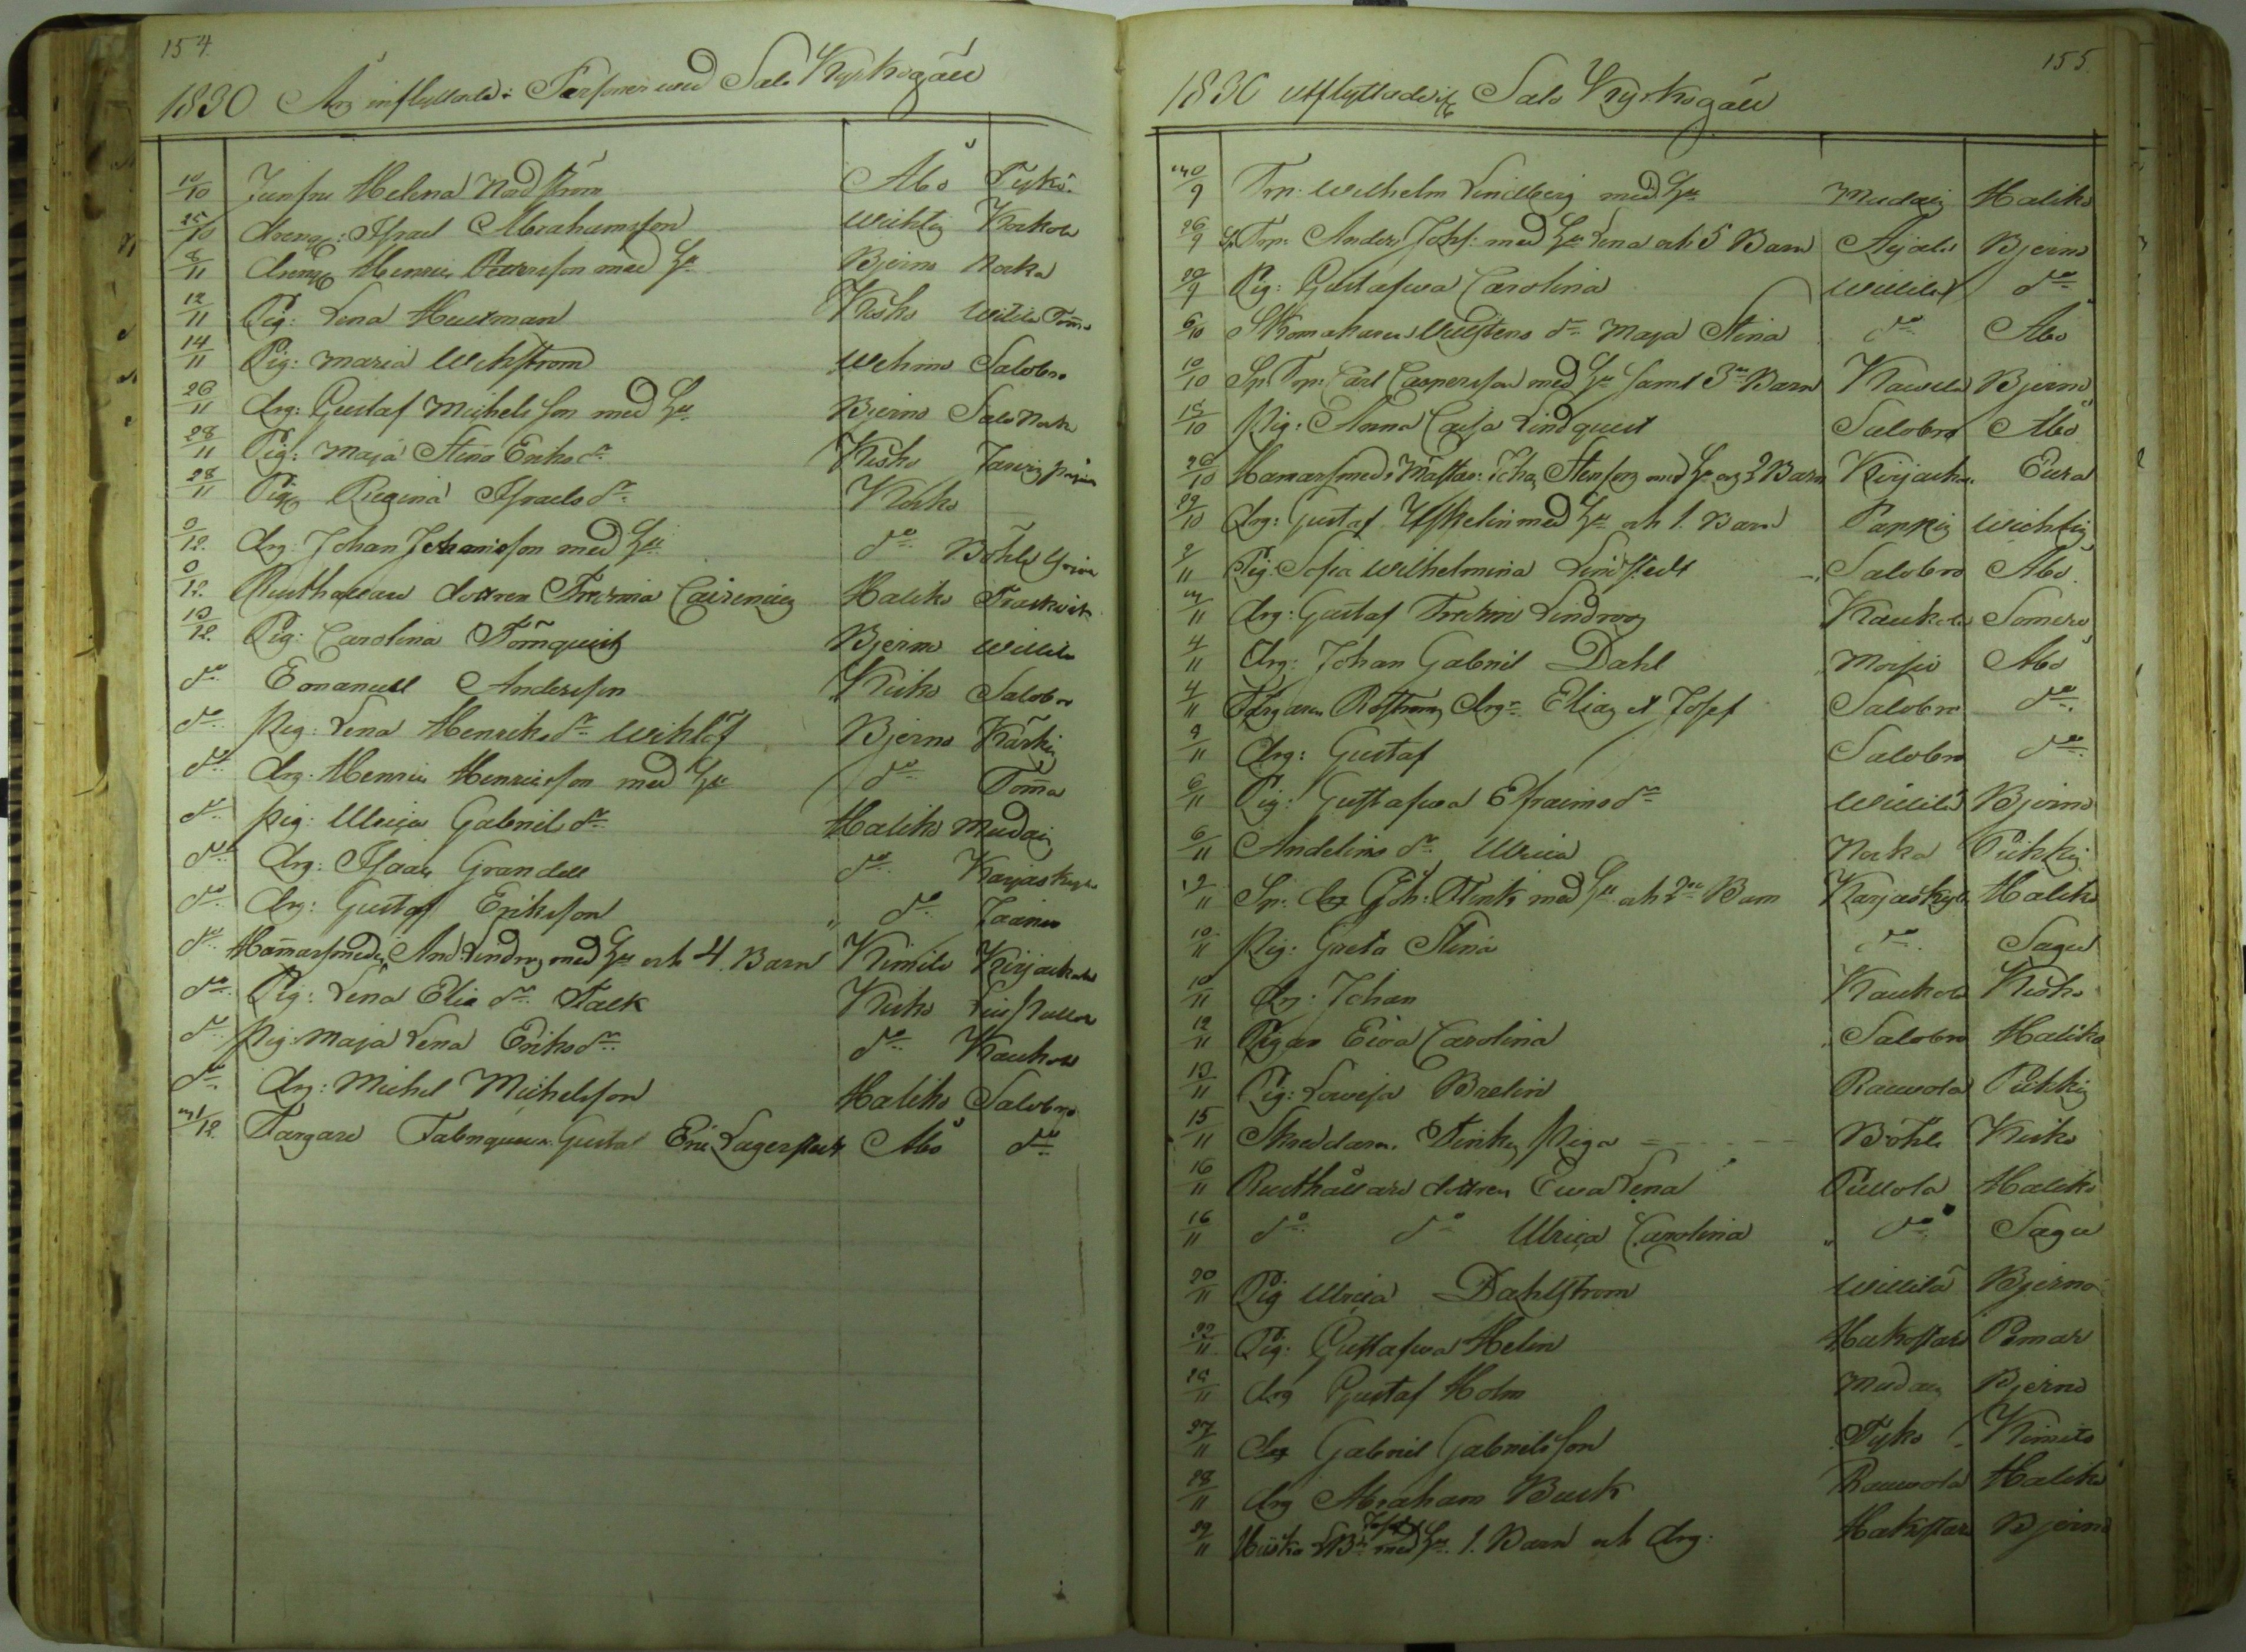 154.
1830 Års inflyttade Personer uti Salo Kyrkogäll
10/10 Junfru Helena Nordström Åbo Tyko
25/10 drengen: Israel Abrahamsson Wichtis Kaukola
8/11 drengen Henric Pettersson med Hu Bjerno Norka
12/11 Pig: Lena Hultman Kisko Willila
14/11 Pig: Maria Wikström Wehmo Salobro
26/11 drg: Gustaf Michelsson med Hu Bjerno Salo
28/11 Pig: Maja Stina Eriks dr Kisko
28/11 Pig Regina Israels dr Kisko
9/12. drg: Johan Johansson med Hu do Böhle
9/12. Rusthållare dottren Fredrica Haliko
10/12. Pig: Carolina Törnquist Bjerno Willila
do Emanuel Andersson Kisko Salobro
do Pig: Lena Henriks dr Wiklöf Bjerno Kärki
do drg: Henric Henricsson med Hu do
do pig: Ulrica Gabriels dr Haliko Mudais
do drg: Isaac Grandell do Karjaskylä
do drg: Gustaf Eriksson " do
do Hammarsmeden And: Lindroos med Hu och 4. Barn Kimito Kirjackala
do Pig: Lena Elia dr Falk Kisko
do Pig: Maja Lena Eriks dr do Kaukola
do drg: Michel Michelsson Haliko Salobro
31/12. Färgare Gustaf Eric Lagerstedt Åbo do
155.
1830 utflyttade ifr Salo Kyrkogäll
20/9 Trp: Wilhelm Lindberg med Hu Mudais Haliko
26/9 Trp: Anders Johs: med Hu Lena och 5 Barn Aijala Bjerno
29/9 Pig: Gustafwa Carolina Willila do
6/10 Skomakaren dr Maja Stina do Åbo
10/10 Sp. Trp: Carl Caspersson med Hu samt 3ne Barn Kawila Bjerno
15/10 Pig: Anna Caisa Lindquist Salobro Åbo
26/10 Hamarsmeds Mästar: Joh: med Hu og 2 Barn Kirjackala Eura
29/10 drg: Gustaf med Hu och 1. Barn Pappis Wichtis
2/11 Pig: Sofia Wilhelmina Lindstedt Salobro Åbo.
3/11 drg: Gustaf Fredric Lindroos Kaukola Somero
4/11 drg: Johan Gabriel Dahl Moisio Åbo
4/11 Färgaren drgr Elias et Josef Salobro do
9/11 drg: Gustaf Salobro do
6/11 Pig: Gustafwa Efraims dr Willila Bjerno
6/11 Andelins dr Ulrica Norka Piikkis
9/11 Sp: drg Joh: Flink med Hu och 2ne Barn Karjaskylä Haliko
10/11 Pig: Greta Stina do Sagu
10/11 drg: Johan Kaukola Kisko
12/11 Pigan Eiva Carolina Salobro Haliko
13/11 Pig: Lowisa Brelin Rauwola Piikkis
15/11 Skreddaren Piga Böhle Kisko
16/11 Rusthållare dottren Ewa Lena Pullola Haliko
16/11 do do Ulrica Carolina " do Sagu
20/11 Pig Ulrica Dahlström Willila Bjerno
22/11 Pig: Gustafwa Helin Hukostare Pemar
25/11 drg Gustaf Holm Mudais Bjerno
27/11 drg Gabriel Gabrielsson Tyko Kimito
28/11 drg Abraham Buck Rauwola Haliko
29/11 med Hu 1. Barn och drg: Bjerno